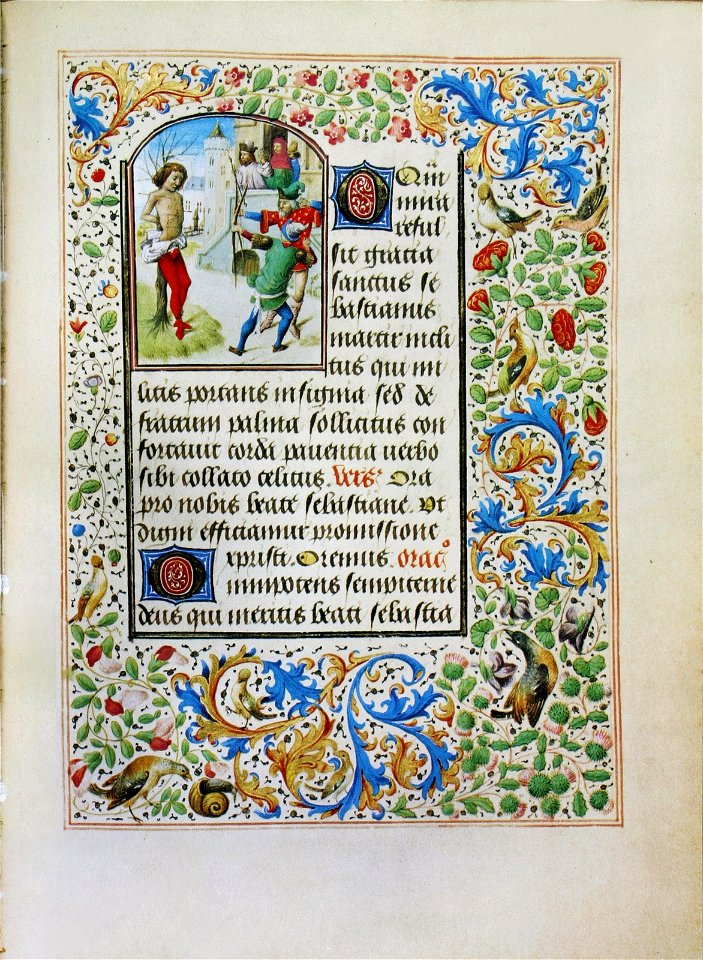 O Quā
mira
reful
sit gracia
sanctus se
bastianus
martir incli
tus qui mi
litis portans insignia sed de
fratrum palma sollicitus con
fortauit corda pauentia uerbo
sibi collato celitus. Vers' Ora
pro nobis beate sebastiane Vt
digni efficiamur promissione
xpristi. Oremus. orac'
Omnipotens sempiterne
deus qui meritis beati sebastia